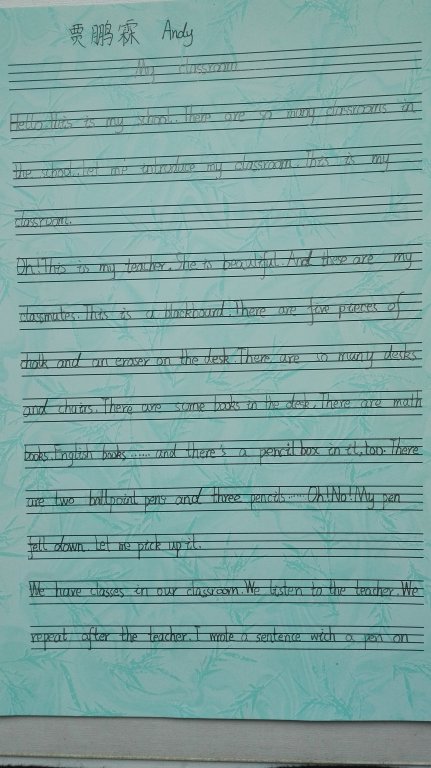 贾鹏霖 Andy
My classroom
Hello. This is my school. There are so many classrooms in
the school. Let me introduce my classroom. This is my
classroom.
Oh! This is my teacher. She is beautiful. And these are my
classmates. This is a blackboard. There are five pieces of
chalk and an eraser on the desk. There are so many desks
and chairs. There are some books in the desk. There are math
books. English books ...... and there's a pencil box in it, too. There
are two ballpoint pens and three pencils ...... Oh! No! My pen
fell down. Let me pick up it.
We have classes in our classroom. We listen to the teacher. We
repeat after the teacher. I wrote a sentence with a pen on